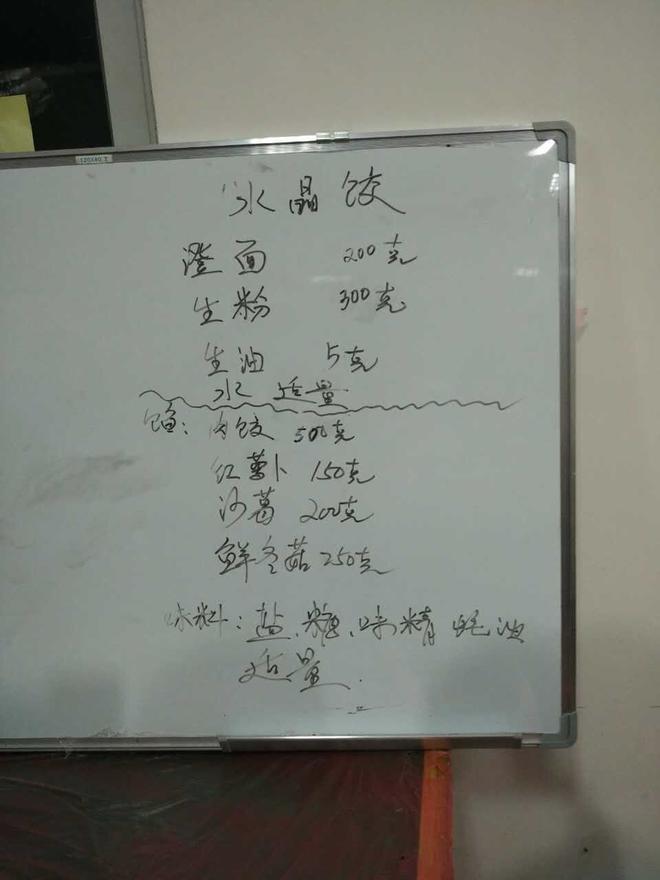 120X90
水晶饺
澄面 200克
生粉 300克
生油 5克
水 适量
馅: 肉饺 500克
红萝卜 150克
沙葛 200克
鲜冬菇 250克
味料: 盐、糖、味精 蚝油
适量.